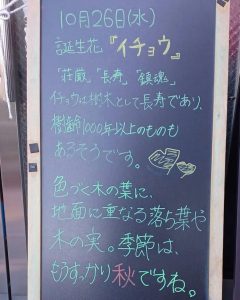 10月26日(水)
誕生花『イチョウ』
「荘厳」「長寿」「鎮魂」
イチョウは樹木として長寿であり、
樹齢1000年以上のものも
あるそうです。
色づく木の葉に、
地面に重なる落ち葉や
木の実。季節は、
もうすっかり秋ですね。